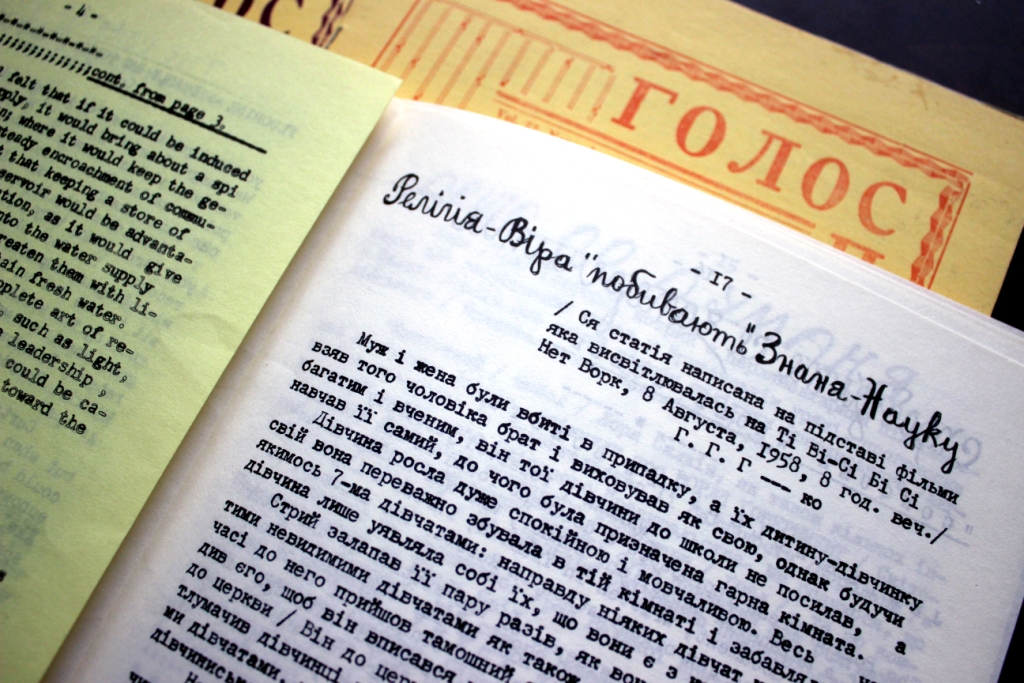 - 4 -
cont. from page 3.
felt that if it could be induced
it would bring about a spi
where it would keep the ge-
encroachment of commu-
that keeping a store of
would be advanta-
as it would give
the water supply
them with li-
fresh water.
art of re-
such as light,
leadership,
could be ca-
toward the
ГОЛОС
- 17 -
Релігія-Віра "побивають" Знаня-Науку
/ Ся статія написана на підставі фільми
яка висвітлювалась на Ті Бі-Сі Бі Сі
Нет Ворк, 8 Августа, 1958, 8 год. веч./
Г. Г. Г --- ко
Муж і жена були вбиті в припадку, а їх дитину-дівчинку
взяв того чоловіка брат і виховував як свою, однак будучи
багатим і вченим, він тої дівчини до школи не посилав, а
навчав її самий, до чого була призначена гарна кімната.
Дівчина росла дуже спокійною і мовчаливою. Весь
свій вона переважно збувала в тій кімнаті і забавля
якимось 7-ма дівчатами: направду ніяких дівчат
дівчина лише уявляла собі їх, що вони є з
Стрий залапав її пару разів, як
тими невидимими дівчатами як також
часі до него прийшов тамошний
див єго, щоб він вписався
до церкви / Він до
тлумачив дівчинці
ми дівчатами,